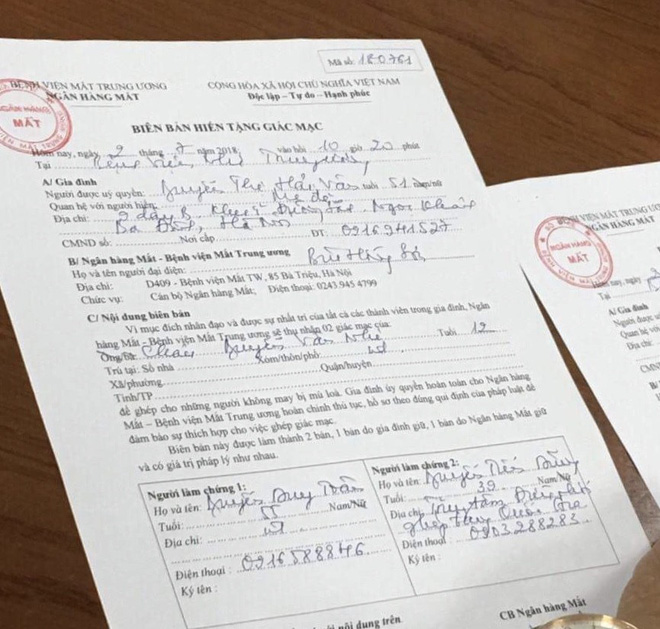 Mã số: 180761
BỆNH VIỆN MẮT TRUNG ƯƠNG
NGÂN HÀNG MẮT
CỘNG HÒA XÃ HỘI CHỦ NGHĨA VIỆT NAM
Độc lập – Tự do – Hạnh phúc
NGÂN HÀNG
MẮT
BIÊN BẢN HIẾN TẶNG GIÁC MẠC
Hôm nay, ngày 2 tháng 7 năm 2018, vào hồi 10 giờ 20 phút
Tại Bệnh viện Nhi Trung ương
A/ Gia đình
Người được uỷ quyền: Nguyễn Thị Hải Vân tuổi 51 nam/nữ
Quan hệ với người hiến: Mẹ đẻ
Địa chỉ: Ngọc Khánh
Ba Đình, Hà Nội ĐT: 0916941527
CMND số: Nơi cấp
B/ Ngân hàng Mắt - Bệnh viện Mắt Trung ương
Họ và tên người đại diện:
Địa chỉ: D409 - Bệnh viện Mắt TW, 85 Bà Triệu, Hà Nội
Chức vụ: Cán bộ Ngân hàng Mắt; Điện thoại: 0243 945 4799
C/ Nội dung biên bản
Vì mục đích nhân đạo và được sự nhất trí của tất cả các thành viên trong gia đình, Ngân
hàng Mắt - Bệnh viện Mắt Trung ương sẽ thu nhận 02 giác mạc của:
Ông/Bà: Cháu Nguyễn Vân Nhi Tuổi: 12
Trú tại: Số nhà Xóm/thôn/phố:
Xã/phường: Quận/huyện:
Tỉnh/TP
để ghép cho những người không may bị mù loà. Gia đình ủy quyền hoàn toàn cho Ngân hàng
Mắt – Bệnh viện Mắt Trung ương hoàn chỉnh thủ tục, hồ sơ theo đúng qui định của pháp luật để
đảm bảo sự thích hợp cho việc ghép giác mạc.
Biên bản này được làm thành 2 bản, 1 bản do gia đình giữ, 1 bản do Ngân hàng Mắt giữ
và có giá trị pháp lý như nhau.
Người làm chứng 1:
Họ và tên: Nguyễn Duy Toản
Tuổi: 55 Nam/Nữ
Địa chỉ:
Điện thoại: 0916588846
Ký tên:
Người làm chứng 2:
Họ và tên: Nguyễn Tiến Dũng
Tuổi: 39 Nam/Nữ
Địa chỉ: Trung tâm Điều phối
ghép tạng Quốc Gia
Điện thoại: 0903288283
Ký tên:
nội dung trên.
CB Ngân hàng Mắt
BỆNH VIỆN MẮT TRUNG
NGÂN HÀNG MẮT
NGÂN HÀNG
MẮT
Hôm nay, ngày
Tại
A/ Gia đình
Người được
Quan hệ
Địa chỉ:
CMND
B/